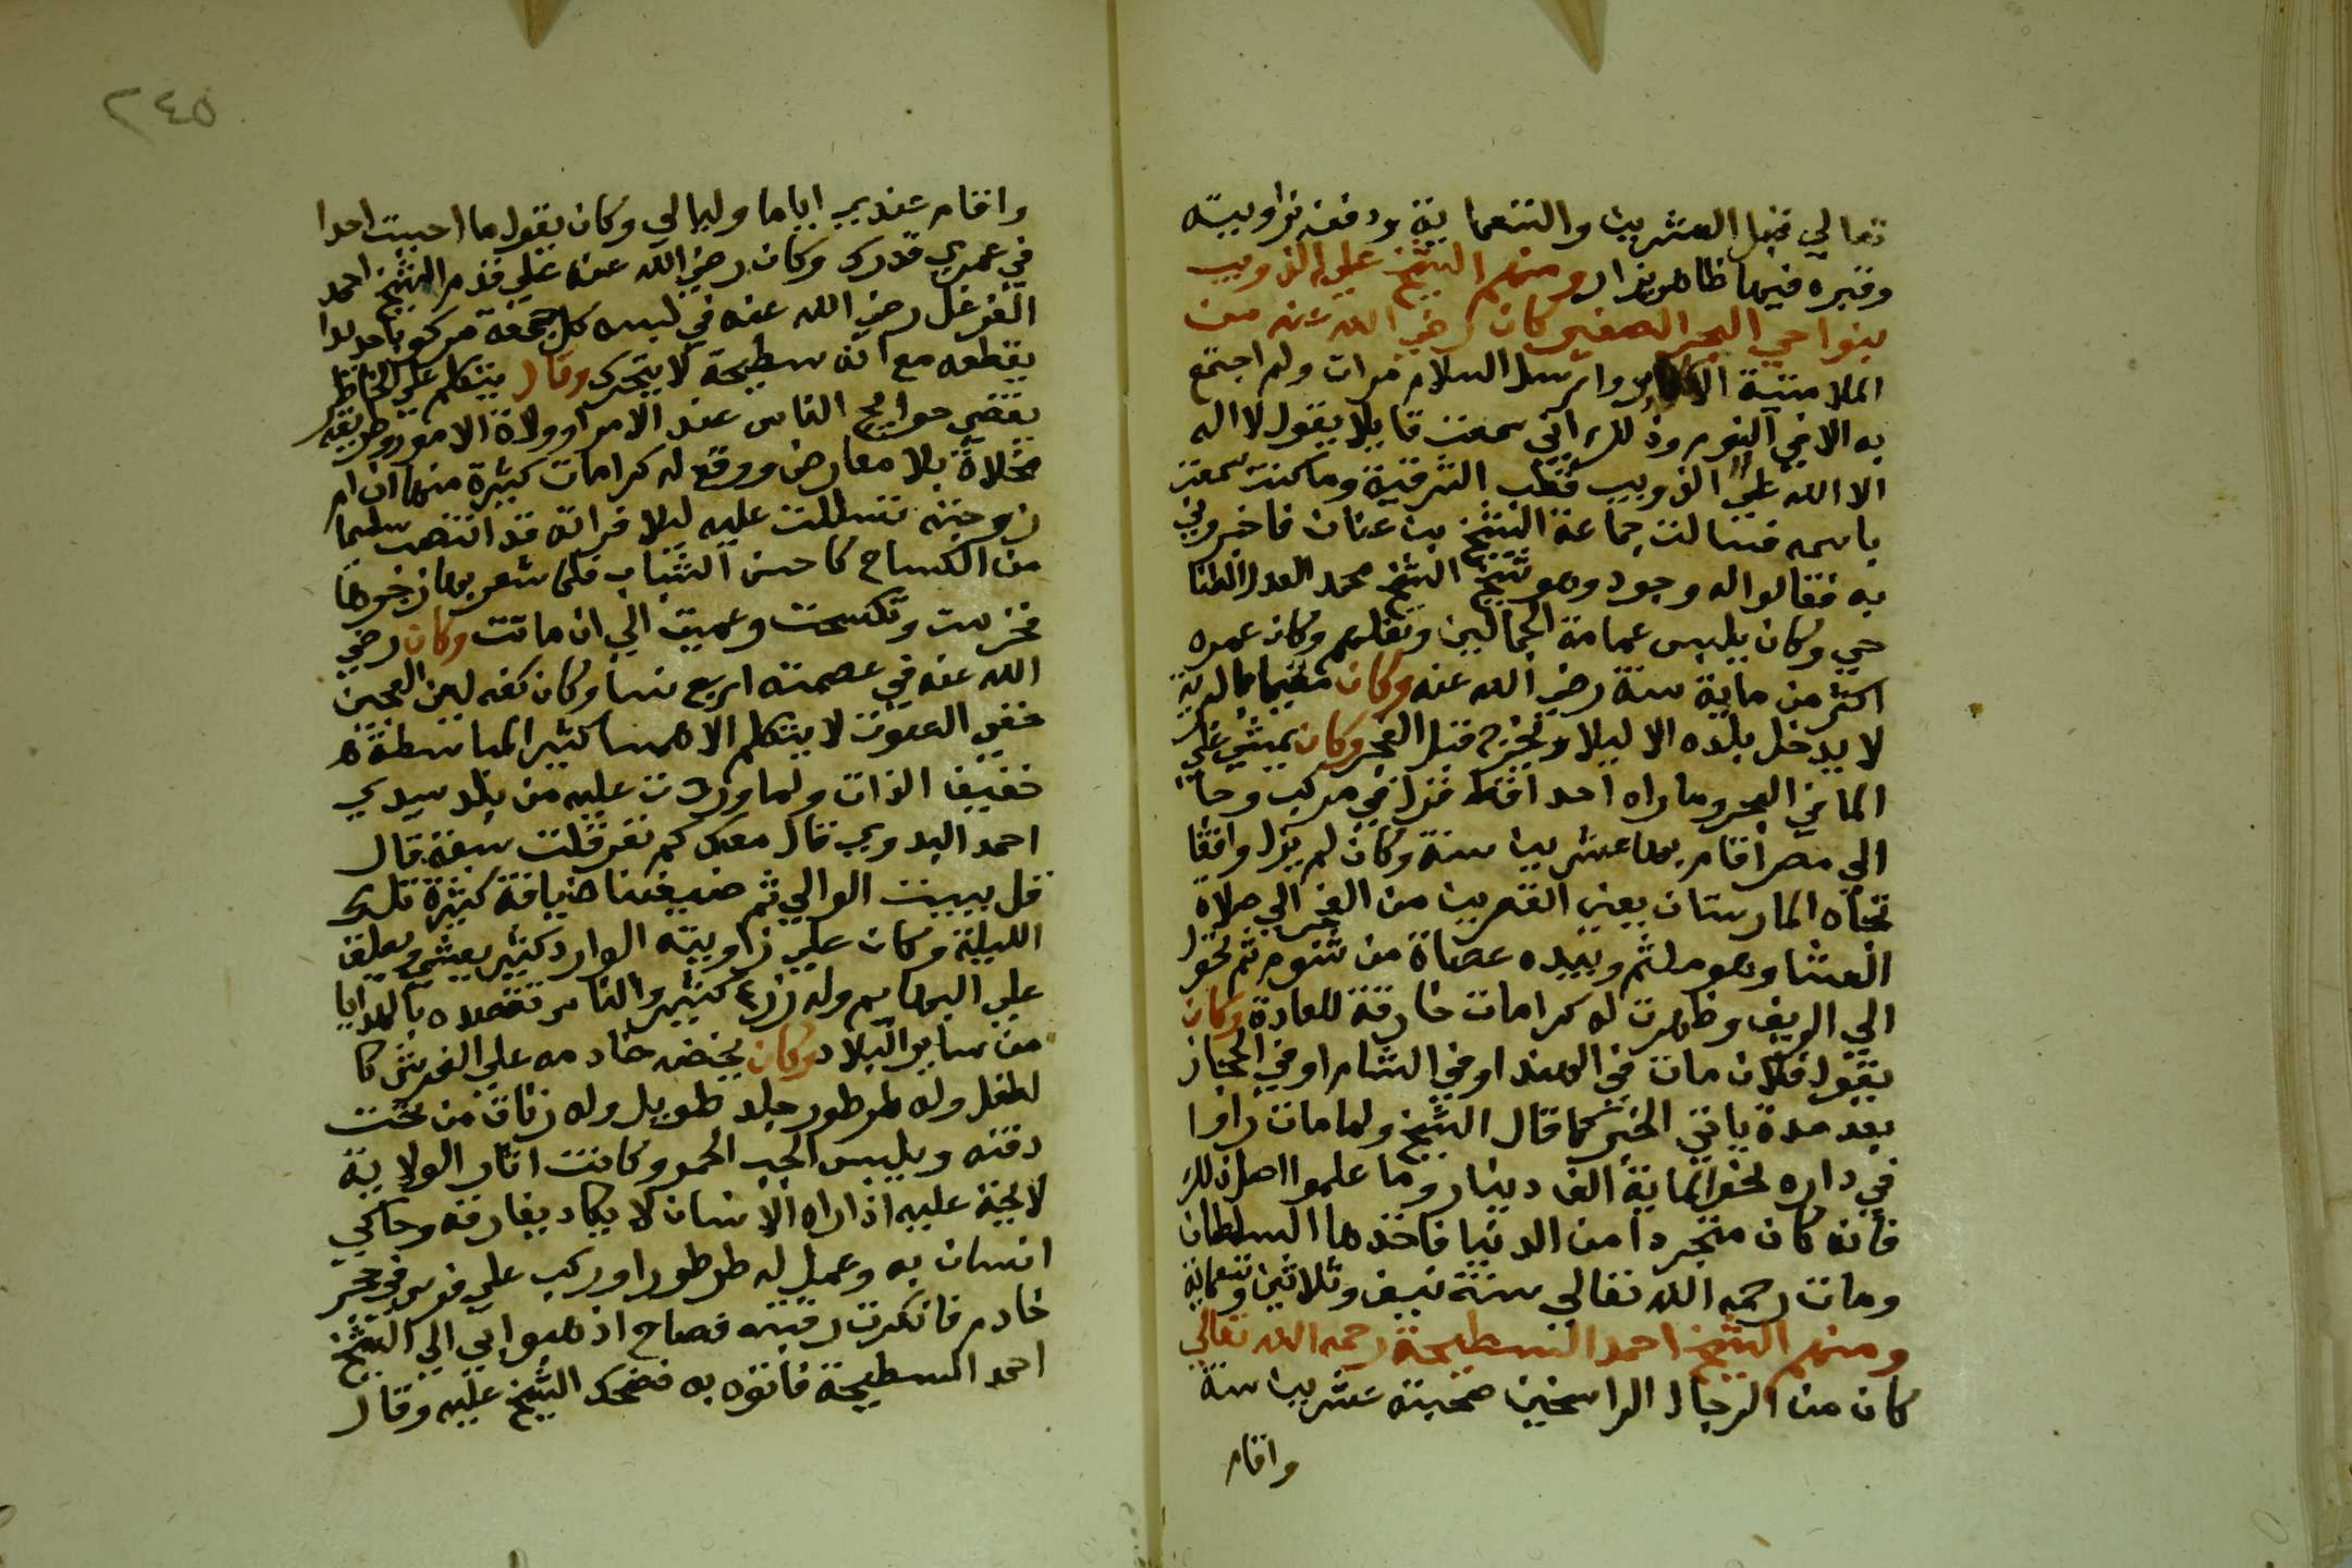 تعالي قبل العشرين والتسعماية ودفن بزاويته
وقبره فيها ظاهر يزار ومنهم الشيخ علي الذويب
بنواحي البحر الصغير كان رضي الله عنه من
الملامتية الاكابر وارسل السلام مرات ولم اجتمع
به الا في النوم وذلك اني سمعت قايلا يقول لا اله
الا الله علي الذويب قطب الشرقية وما كنت سمعت
باسمه فسالت جماعة الشيخ بن عنان فاخبروني
به فقالوا له وجود وهو شيخ الشيخ محمد العدل الطنا
حي وكان يلبس عمامة الجمالين ونعلهم وكان عمره
اكثر من ماية سنة رضي الله عنه وكان مقيما بالبرية
لا يدخل بلده الا ليلا ويخرج قبل الفجر وكان يمشي علي
الما في البحر وما راه احد اقط نزل في مركب وجا
الي مصر اقام بها عشرين سنة وكان لم يزل واقفا
تجاه المارستان بين القصرين من الفجر الي صلاة
العشا وهو ملثم وبيده عصاة من شوم ثم تحول
الي الريف وظهرت له كرامات خارقة للعادة وكان
يقول فلان مات في الهند او في الشام او في الحجاز
بعد مدة ياتي الخبر كما قال الشيخ ولما مات راوا
في داره نحو الماية الف دينار وما علموا اصل ذلك
فانه كان متجردا من الدنيا فاخذها السلطان
ومات رحمه الله تعالي سنة نيف وثلاثين وتسعماية
ومنهم الشيخ احمد السطيحة رحمه الله تعالي
كان من الرجال الراسخين صحبته عشرين سنة
واقام
٢٤٥
واقام عندي اياما وليالي وكان يقول ما احببت احدا
في عمري قدرك وكان رضي الله عنه علي قدم الشيخ احمد
الفرغل رضي الله عنه في لبسه كل جمعة مركوبا جديدا
يقطعه مع انه سطيحة لا يتحرك وقال يتكلم علي الخاطر
يقضي حوايج الناس عند الامرا وولاة الامور وطريقه
مخلاة بلا معارض ووقع له كرامات كثيرة منها ان ام
زوجته تسللت عليه ليلا فراته قد انتصب سليما
من الكساح كاحسن الشباب فلما شعر بها زجرها
فخرست وتكسحت وعميت الي ان ماتت وكان رضي
الله عنه في عصمته اربع نسا وكان كفه لين العجين
خفي الصوت لا يتكلم الا همسا كثير المباسطة
خفيف الذات ولما وردت عليه من بلد سيدي
احمد البدوي قال معك كم نفر قلت سبعة قال
قل بيبيت الوالي ثم ضيفنا ضيافة كثيرة تلك
الليلة وكان علي زاويته الوارد كثير يعشي ويعلق
علي البهايم وله زرع كثير والناس تقصده بالهدايا
من ساير البلاد وكان يحضنه خادمه علي الفرس كا
لطفل وله طرطور جلد طويل وله زناق من تحت
دقنه ويلبس الجبب الحمر وكانت اثار الولاية
لايحة عليه اذا راه الانسان لا يكاد يفارقه وحاكي
انسان به وعمل له طرطورا وركب علي فرس في حجر
خادم فانكسرت رقبته فصاح اذهبوا بي الي الشيخ
احمد السطيحة فاتوه به فضحك الشيخ عليه وقال